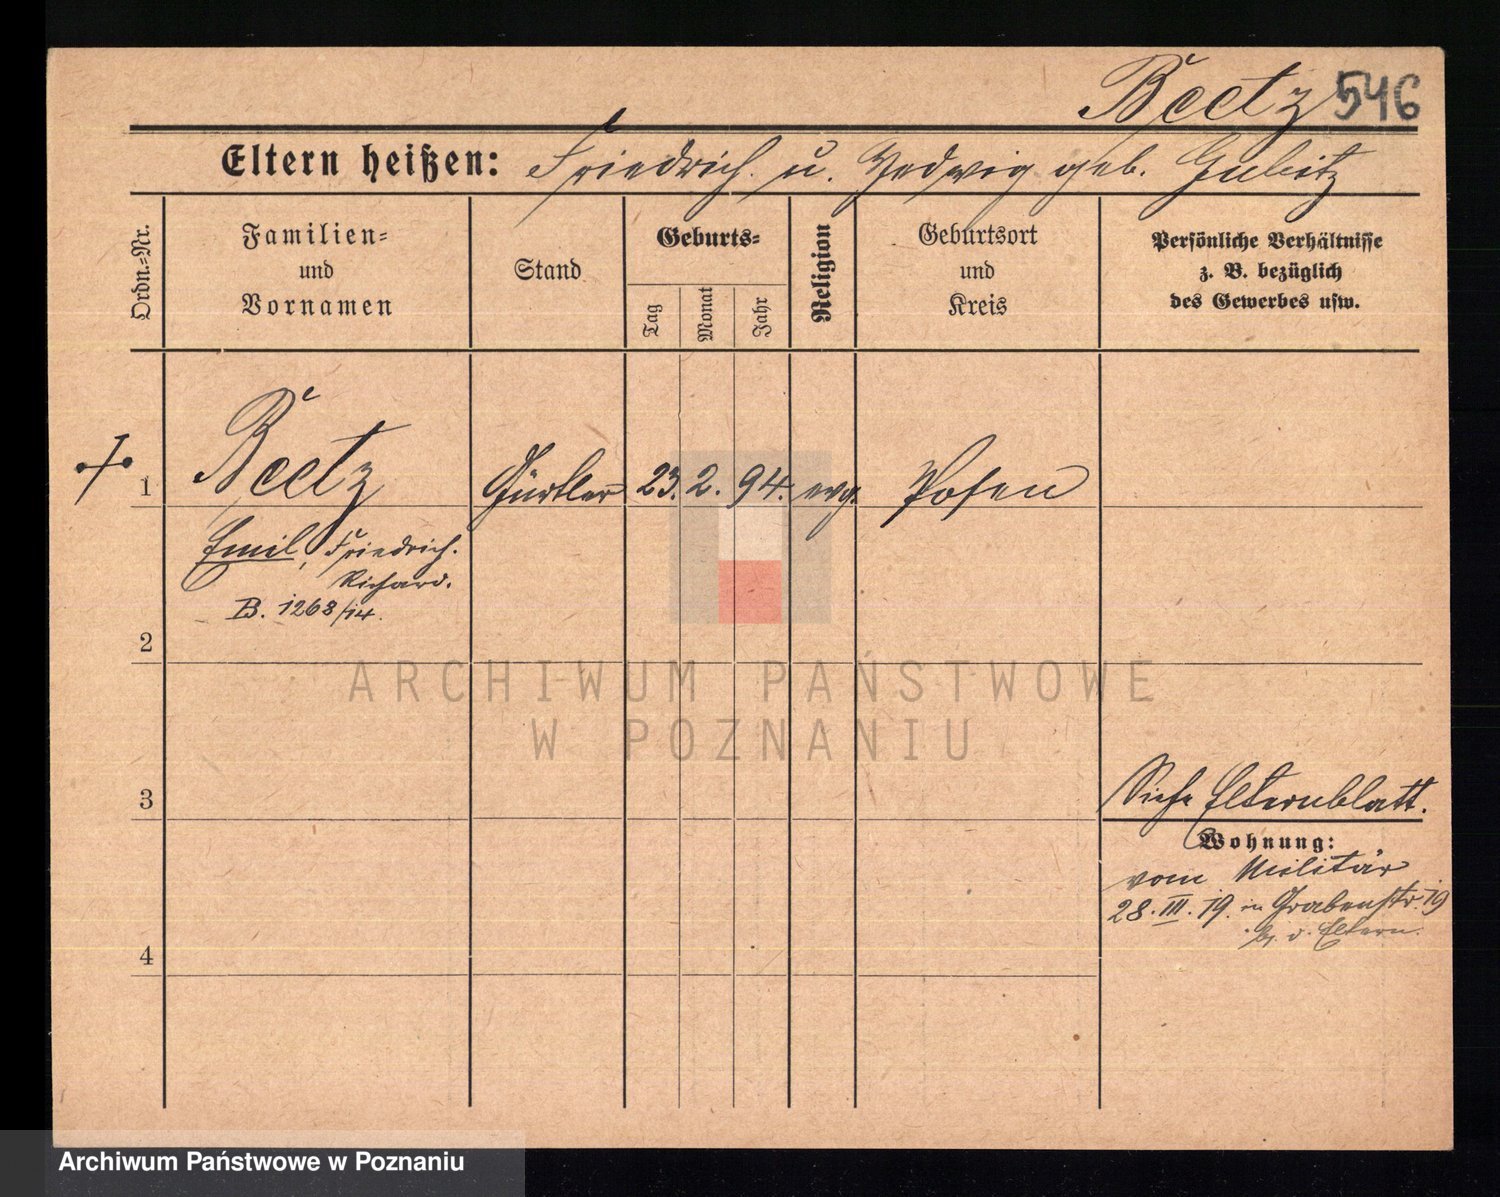 Beetz 546
Eltern heißen: Friedrich u. Hedwig geb. Gubitz
Ordn.=Nr.
Familien=
und
Vornamen
Stand
Geburts=
Tag
Monat
Jahr
Religion
Geburtsort
und
Kreis
Persönliche Verhältnisse
z. B. bezüglich
des Gewerbes usw.
1 Beetz Gürtler 23. 2. 94. evg. Posen
Emil, Friedrich.
Richard.
B. 1268/14.
2
ARCHIWUM PAŃSTWOWE
W POZNANIU
3
Siehe Elternblatt.
Wohnung:
vom Militär
28. III. 19. in Grabenstr. 19
b. d. Eltern.
4
Archiwum Państwowe w Poznaniu